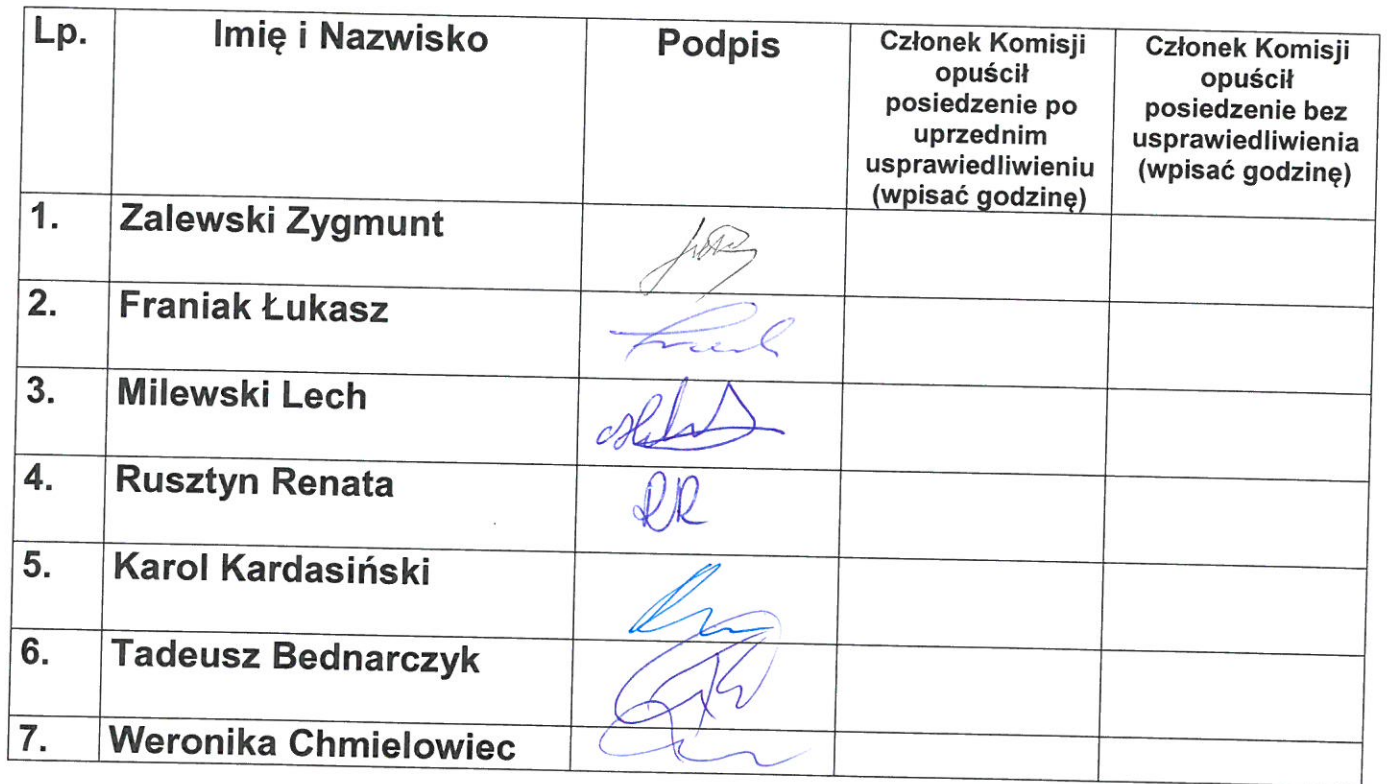 Lp. Imię i Nazwisko Podpis Członek Komisji opuścił posiedzenie po uprzednim usprawiedliwieniu (wpisać godzinę) Członek Komisji opuścił posiedzenie bez usprawiedliwienia (wpisać godzinę)
1. Zalewski Zygmunt
2. Franiak Łukasz
3. Milewski Lech
4. Rusztyn Renata RR
5. Karol Kardasiński
6. Tadeusz Bednarczyk
7. Weronika Chmielowiec